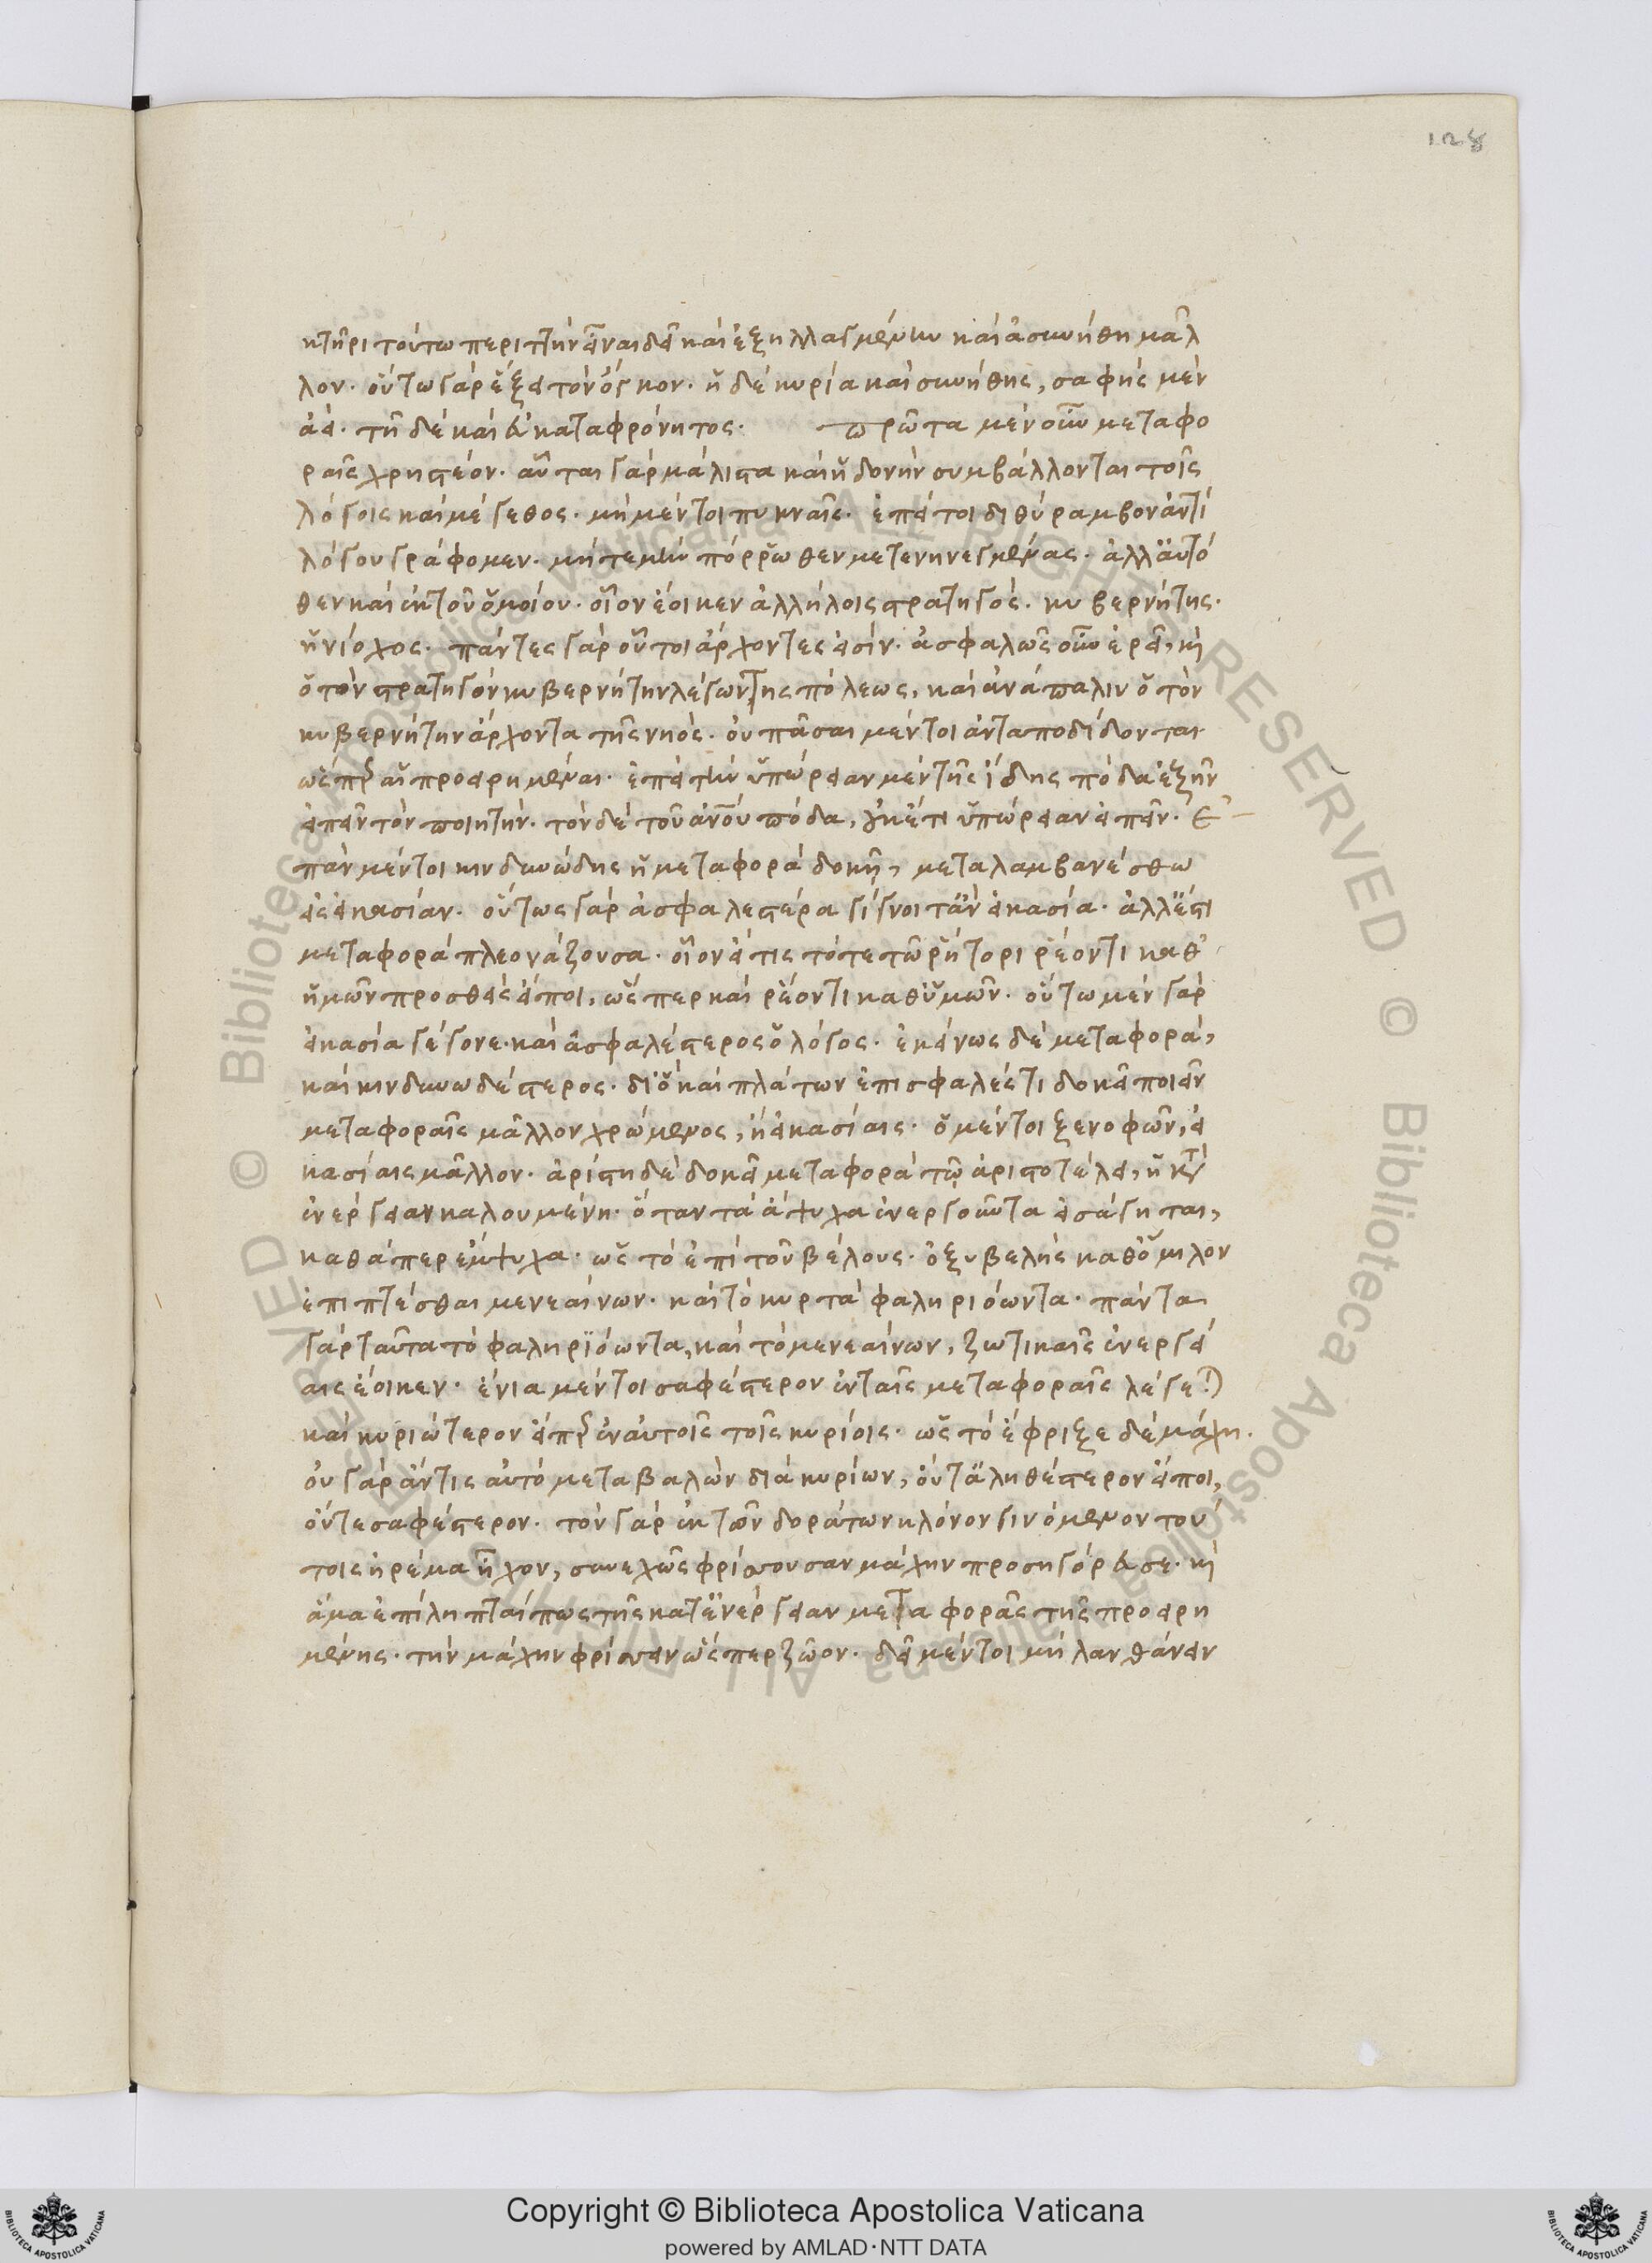 128
κτῆρι τούτω περιττὴν εἶναι δεῖ καὶ ἐξηλλαγμένην καὶ ἀσυνήθη μᾶλ
λον. οὕτω γὰρ ἕξει τὸν ὄγκον. ἡ δὲ κυρία καὶ συνήθης, σαφὴς μὲν
ἀεί. τῆ δὲ καὶ εὐκαταφρόνητος. πρῶτα μὲν οὖν μεταφο
ραῖς χρηστέον. αὗται γὰρ μάλιστα καὶ ἡδονὴν συμβάλλονται τοῖς
λόγοις καὶ μέγεθος. μὴ μέντοι πυκναῖς. ἐπεί τοι διθύραμβον ἀντὶ
λόγου γράφομεν. μήτε μὴν πόρρωθεν μετενηνεγμένας. ἀλλ' αὐτό
θεν καὶ ἐκ τοῦ ὁμοίου. οἷον ἔοικεν ἀλλήλοις στρατηγός. κυβερνήτης.
ἡνίοχος. πάντες γὰρ οὗτοι ἄρχοντες εἰσίν. ἀσφαλῶς οὖν ἐρεῖ, καὶ
ὁ τὸν στρατηγὸν κυβερνήτην λέγων τῆς πόλεως, καὶ ἀνάπαλιν ὁ τὸν
κυβερνήτην ἄρχοντα τῆς νηός. οὐ πᾶσαι μέντοι ἀνταποδίδονται
ὥσπερ αἱ προειρημέναι. ἐπεὶ τὴν ὑπώρειαν μὲν τῆς ἴδης πόδα ἐξῆν
εἰπεῖν τὸν ποιητήν. τὸν δὲ τοῦ ἀνου πόδα, οὐκέτι ὑπώρειαν εἰπεῖν. ἐ
πὰν μέντοι κινδυνώδης ἡ μεταφορὰ δοκῆ, μεταλαμβανέσθω
εἰς εἰκασίαν. οὕτως γὰρ ἀσφαλεστέρα γίγνοιτ' ἂν εἰκασία. ἀλλ' ἔστι
μεταφορὰ πλεονάζουσα. οἷον εἴ τις τότε τῶ ῥήτορι ῥέοντι καθ'
ἡμῶν προσθεὶς εἴποι, ὥσπερ καὶ ῥέοντι καθ' ὑμῶν. οὕτω μὲν γὰρ
εἰκασία γέγονε. καὶ ἀσφαλέστερος ὁ λόγος. ἐκείνως δὲ μεταφορά,
καὶ κινδυνωδέστερος. διὸ καὶ πλάτων ἐπισφαλές τι δοκεῖ ποιεῖν
μεταφοραῖς μᾶλλον χρώμενος, ἢ εἰκασίαις. ὁ μέντοι ξενοφῶν, εἰ
κασίαις μᾶλλον. ἀρίστη δὲ δοκεῖ μεταφορὰ τῷ ἀριστοτέλει, ἡ κατὰ
ἐνέργειαν καλουμένη. ὅταν τὰ ἄψυχα ἐνεργοῦντα εἰσάγηται,
καθάπερ ἔμψυχα. ὡς τὸ ἐπὶ τοῦ βέλους. ὀξυβελὴς καθ' ὅμιλον
ἐπιπτέσθαι μενεαίνων. καὶ τὸ κυρτὰ φαληριόωντα. πάντα
γὰρ ταῦτα τὸ φαληριόωντα, καὶ τὸ μενεαίνων, ζωτικαῖς ἐνεργεί
αις ἔοικεν. ἔνια μέντοι σαφέστερον ἐν ταῖς μεταφοραῖς λέγεται
καὶ κυριώτερον εἴπερ ἐν αὐτοῖς τοῖς κυρίοις. ὡς τὸ ἔφριξε δὲ μάχη.
οὐ γὰρ ἄν τις αὐτὸ μεταβαλὼν διὰ κυρίων, οὔτ' ἀληθέστερον εἴποι,
οὔτε σαφέστερον. τὸν γὰρ ἐκ τῶν δοράτων κλόνον γινόμενον τού
τοις ἠρέμα ἦχον, συνεχῶς φρίσσουσαν μάχην προσηγόρευσε. καὶ
ἅμα ἐπίληπταί πως τῆς κατ' ἐνέργειαν μεταφορᾶς τῆς προειρη
μένης. τὴν μάχην φρίσσειν ὥσπερ ζῶον. δεῖ μέντοι μὴ λανθάνειν
Copyright © Biblioteca Apostolica Vaticana
powered by AMLAD·NTT DATA